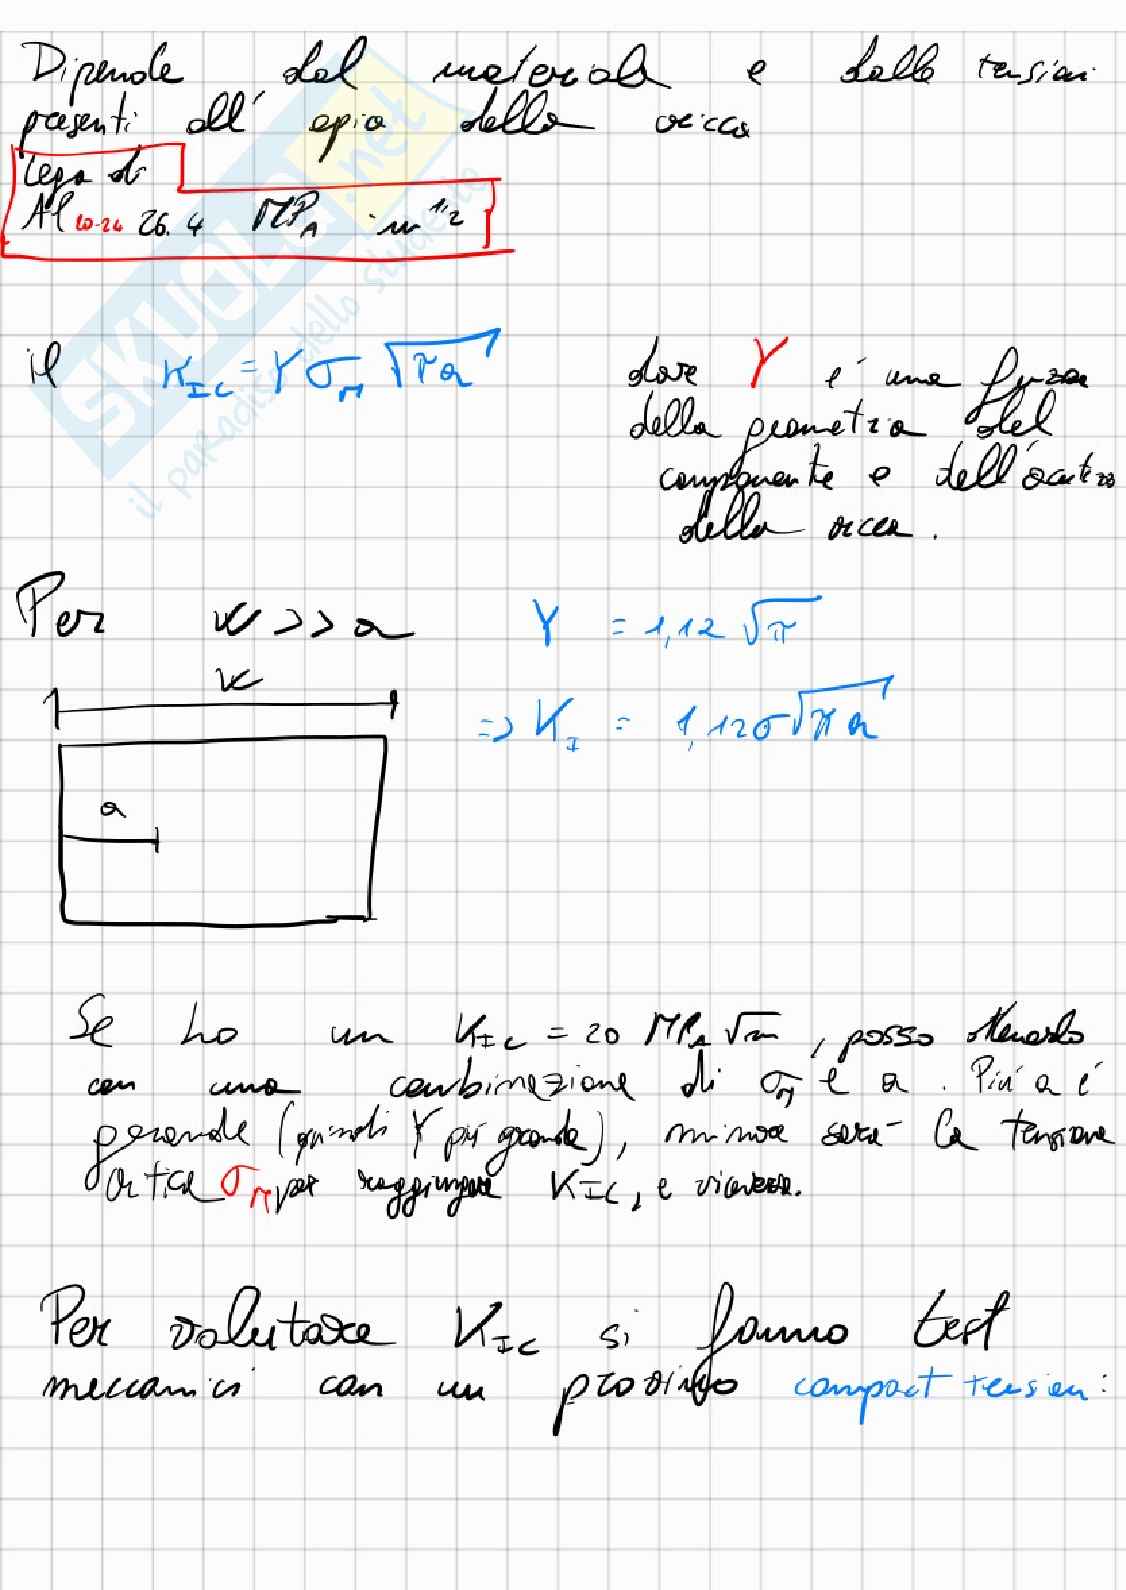 Dipende dal materiale e dalle tensioni
presenti all'apice della cricca
Lega di
Al 20-24 26.4 MPa · m^1/2
il K_IC = Y σ_M √πa dove Y é una funzione
della geometria del
componente e dell'acutezza
della cricca.
Per W >> a Y = 1,12 √π
W
=> K_I = 1,12 σ √πa
a
Se ho un K_IC = 20 MPa √m, posso ottenerlo
con una combinazione di σ_M e a. Più a é
grande (quindi Y più grande), minore sarà la tensione
critica σ_M per raggiungere K_IC, e viceversa.
Per valutare K_IC si fanno test
meccanici con un provino compact tension:
SKUOLA.net
il paradiso dello studente